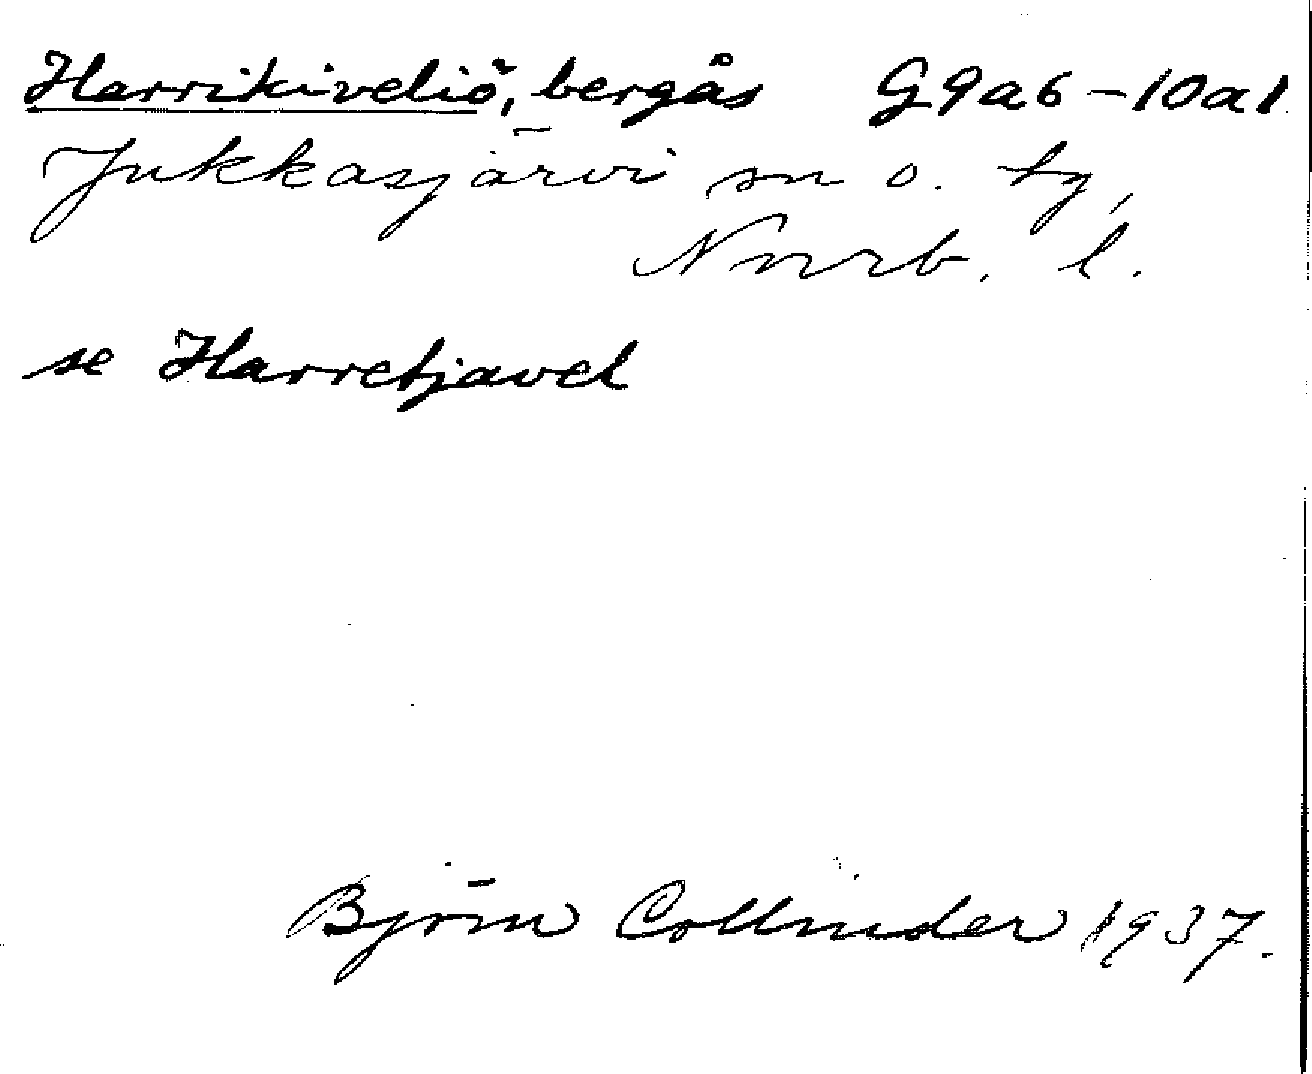 Harrikiveliö, bergås G9a6-10a1
Jukkasjärvi sn o. tg,
Norrb. l.
se Harretjavel
Björn Collinder 1937.